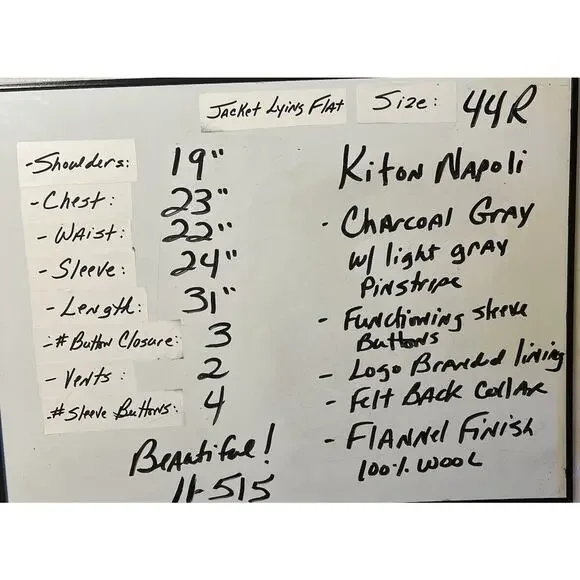 Jacket Lying Flat Size: 44R
- Shoulders: 19"
- Chest: 23"
- Waist: 22"
- Sleeve: 24"
- Length: 31"
- # Button Closure: 3
- Vents: 2
- # Sleeve Buttons: 4
Beautiful!
11-515
Kiton Napoli
- Charcoal Gray
w/ light gray
Pinstripe
- Functioning Sleeve
Buttons
- Logo Branded lining
- Felt Back Collar
- Flannel Finish
100% Wool